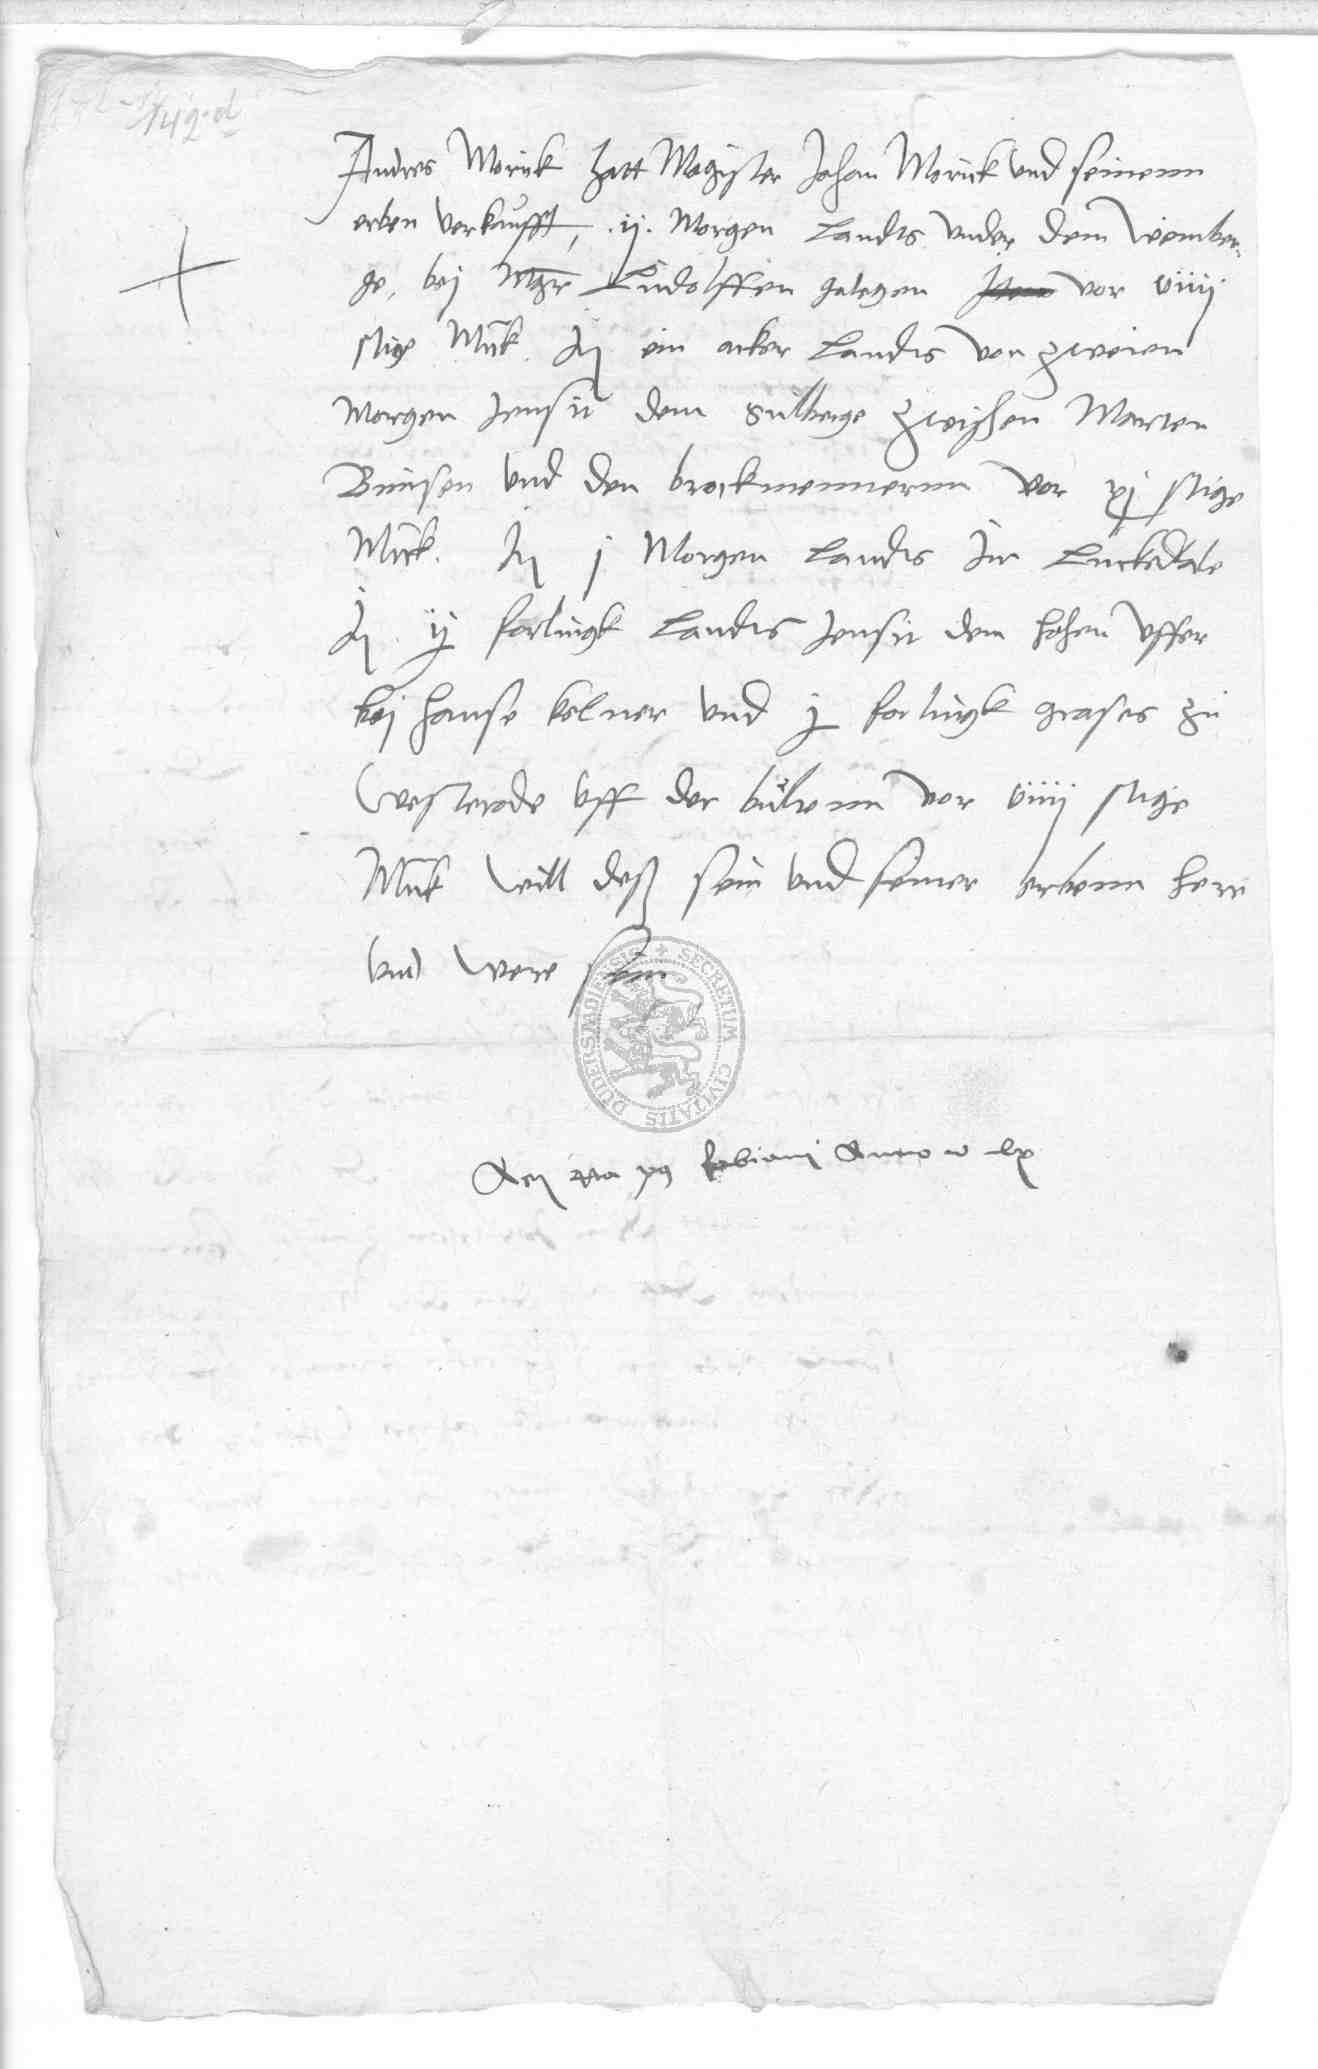 149.d
Andres Morick hatt Magister Johan Morick und seinenn
erben verkaufft, .ij. Morgen Landts under dem Wember-
ge, bej Mgr Ludolffen gelegen vor viiij
stige Mrck. It ein acker Landts von zweien
Morgen Jensit dem Sulberge zwischen Marten
Bunsen und den brockmennernn vor xj stige
Mrck. It j Morgen Landts Im Luckedale
It ij forlingk Landts Jensit dem hohen uffer
bej hanse kelner und j forlingk grases zu
Westerode uff der bulten vor viiij stige
Mrck will deß sein und seiner erbenn herr
und were sein
SECRETUM CIVITATIS DUDERSTADIENSIS
Fabiani Anno lx